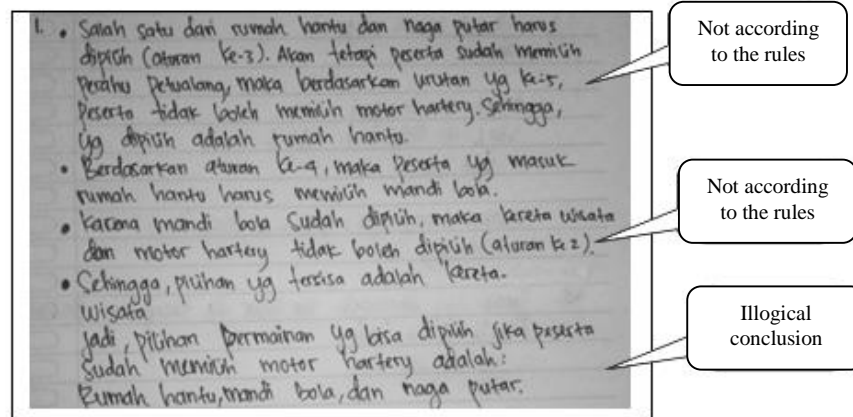 1. • Salah satu dari rumah hantu dan naga putar harus
dipilih (aturan ke-3). Akan tetapi peserta sudah memilih
perahu petualang, maka berdasarkan urutan yg ke-5,
peserta tidak boleh memilih motor hartery. Sehingga,
yg dipilih adalah rumah hantu.
• Berdasarkan aturan ke-4, maka peserta yg masuk
rumah hantu harus memilih mandi bola.
• Karena mandi bola sudah dipilih, maka kereta wisata
dan motor hartery tidak boleh dipilih (aturan ke 2).
• Sehingga, pilihan yg tersisa adalah kereta.
wisata
Jadi, pilihan permainan yg bisa dipilih jika peserta
sudah memilih motor hartery adalah:
Rumah hantu, mandi bola, dan naga putar.
Not according
to the rules
Not according
to the rules
Illogical
conclusion